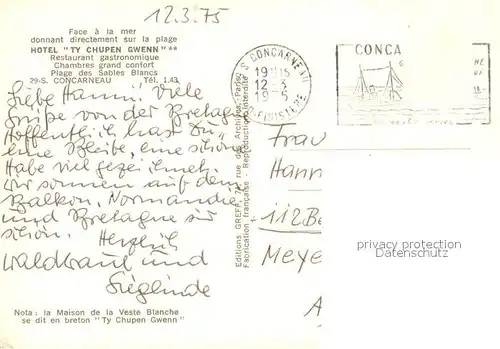 12.3.75
Face à la mer
donnant directement sur la plage
HOTEL "TY CHUPEN GWENN" **
Restaurant gastronomique
Chambres grand confort
Plage des Sables Blancs
29-S. CONCARNEAU Tél. 1.43
Liebe Hanni! Viele
Grüße von der Bretagne
Hoffentlich hast Du
eine Bleibe, eine schöne
Habe viel gezeichnet.
Wir sonnen auf dem
Balkon. Normandie
und Bretagne sur
schön. Herzlich
Waldtraut und
Sieglinde
Nota : la Maison de la Veste Blanche
se dit en breton "Ty Chupen Gwenn"
Editions GREFF, rue des Archives, Paris
Fabrication française - Reproduction interdite
S. CONCARNEAU
19H15
12-3
19 5
FINISTERE
CONCA
Frau
Hann
112 Be
Meye
privacy protection
Datenschutz